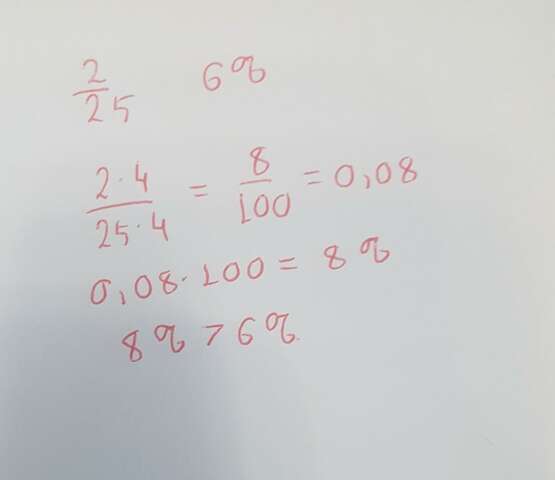 2/25 6%
2·4/25·4 = 8/100 = 0,08
0,08·100 = 8%
8% > 6%